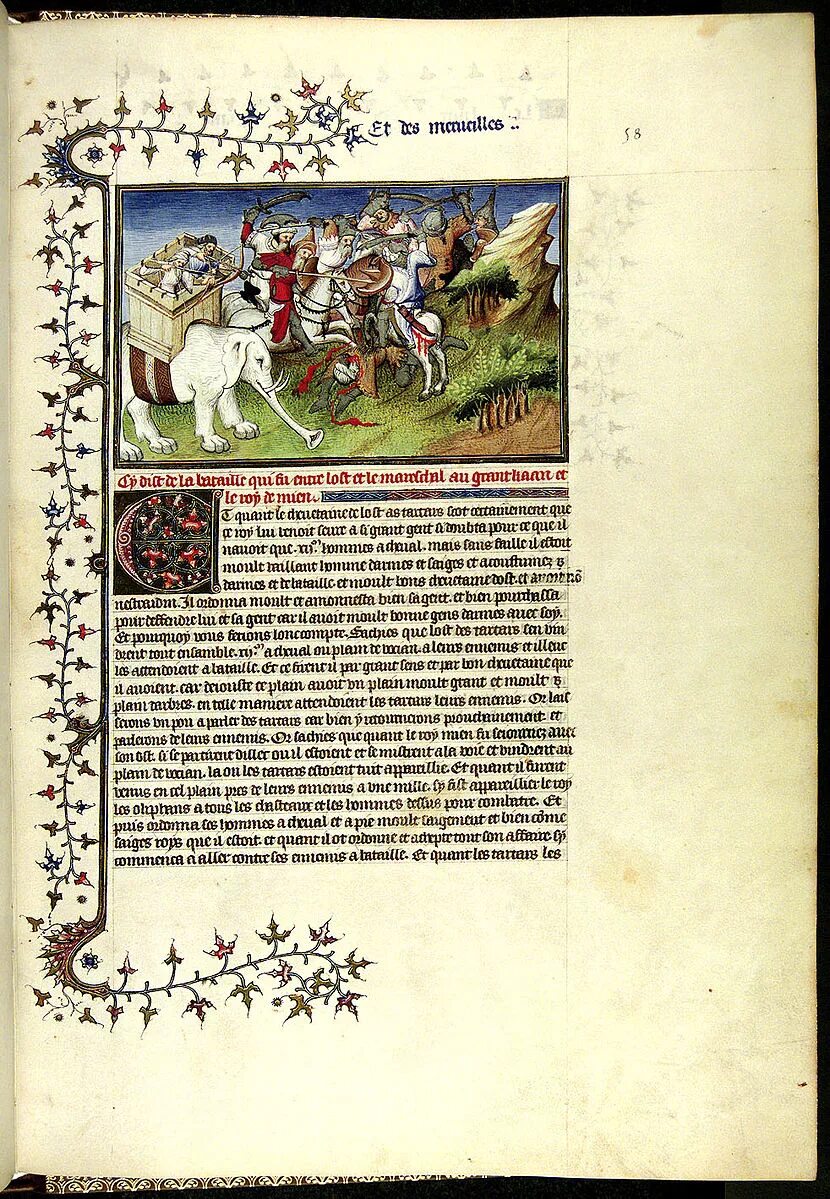 Et des merueilles
58
Cy dist de la bataille qui fu entre lost et le mareschal au grant kaan et
le roy de mien.
Et quant le cheuetaine de lost as tartars scot certainement que
ce roy lui venoit seure a si grant gent si doubta pour ce que il
nauoit que .xij.m hommes a cheual. mais sans faille il estoit
moult vaillant homme darmes et saiges et acoustumez
darmes et de bataille et moult bons cheuetaine dost. et auoit nom
nestraidin. Il ordonna moult et amonnesta bien sa gent. et bien pourchassa
pour deffendre lui et sa gent car il auoit moult bonne gens darmes auec soy.
Et pourquoy vous feroins lonc compte. Sachies que lost des tartars sen vin
drent tout ensamble .xij.m a cheual ou plain de vocian. a leurs ennemis et illeuc
les attendoient a bataille. Et ce firent il par grant sens et par bon cheuetaine que
il auoient. car deiouste ce plain auoit vn plain moult grant et moult
plain darbres. en telle maniere attendoient les tartars leurs ennemis. Or lais
serons vn pou a parler des tartars car bien y retournerons prouchainement et
parlerons de leurs ennemis. Or sachies que quant le roy mien fu seiournez auec
son ost. si se partirent dillec ou il estoient et se mistrent a la voie et vindrent au
plain de vocian. la ou les tartars estoient tuit appareillie. Et quant il furent
venus en cel plain pres de leurs ennemis a vne mille. sy fist appareillier le roy
les oliphans a tous les chasteaux et les hommes dessus pour combatre. Et
puis ordonna ses hommes a cheual et a pie moult saigement et bien come
saiges roys que il estoit. et quant il ot ordonne et achepte tout son affaire. sy
commenca a aller contre ses ennemis a bataille. Et quant les tartars les